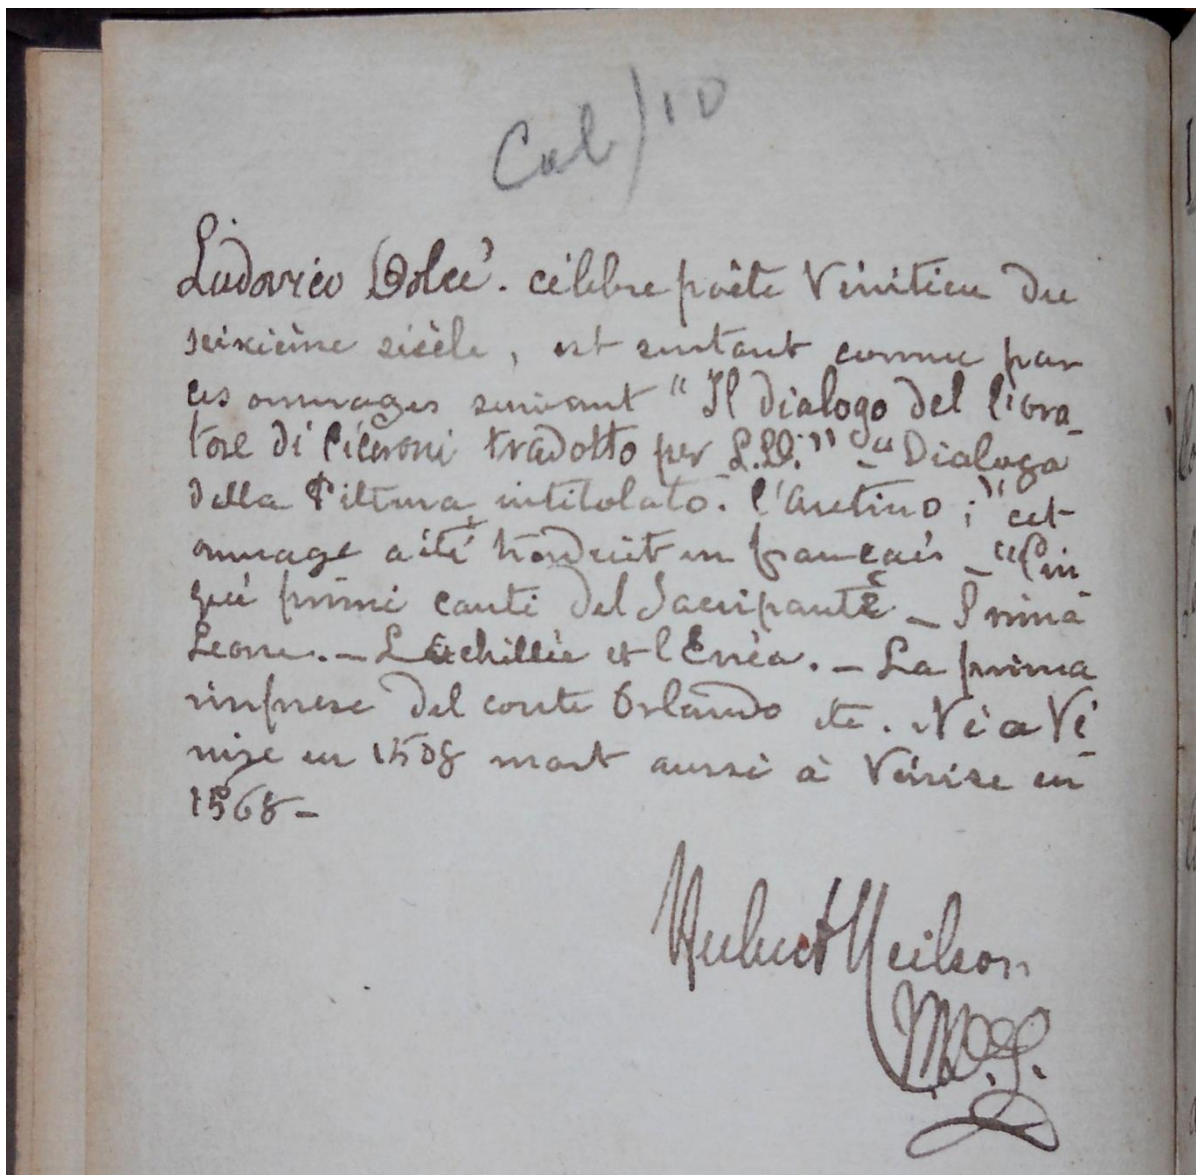 Col/10
Ludovico Dolcé. célèbre poëte Vénitien du
seixième sièele, est surtout connu par
ces ouvrages suivant "Il dialogo del l'ora-
tore di Ciceroni tradotto per L.D." du Dialogo
della Pittura intitolato. l'Aretino;" cet
ouvrage a été traduit en français - "Cin
que primi canti del Sacripante - Prima
Leone. - L'achillée et l'Enéa. - La prima
imprese del conte Orlando etc. Né a Vé-
nise en 1508 mort aussi à Vénise en
1568 -
Hubert Neilson
M.D.